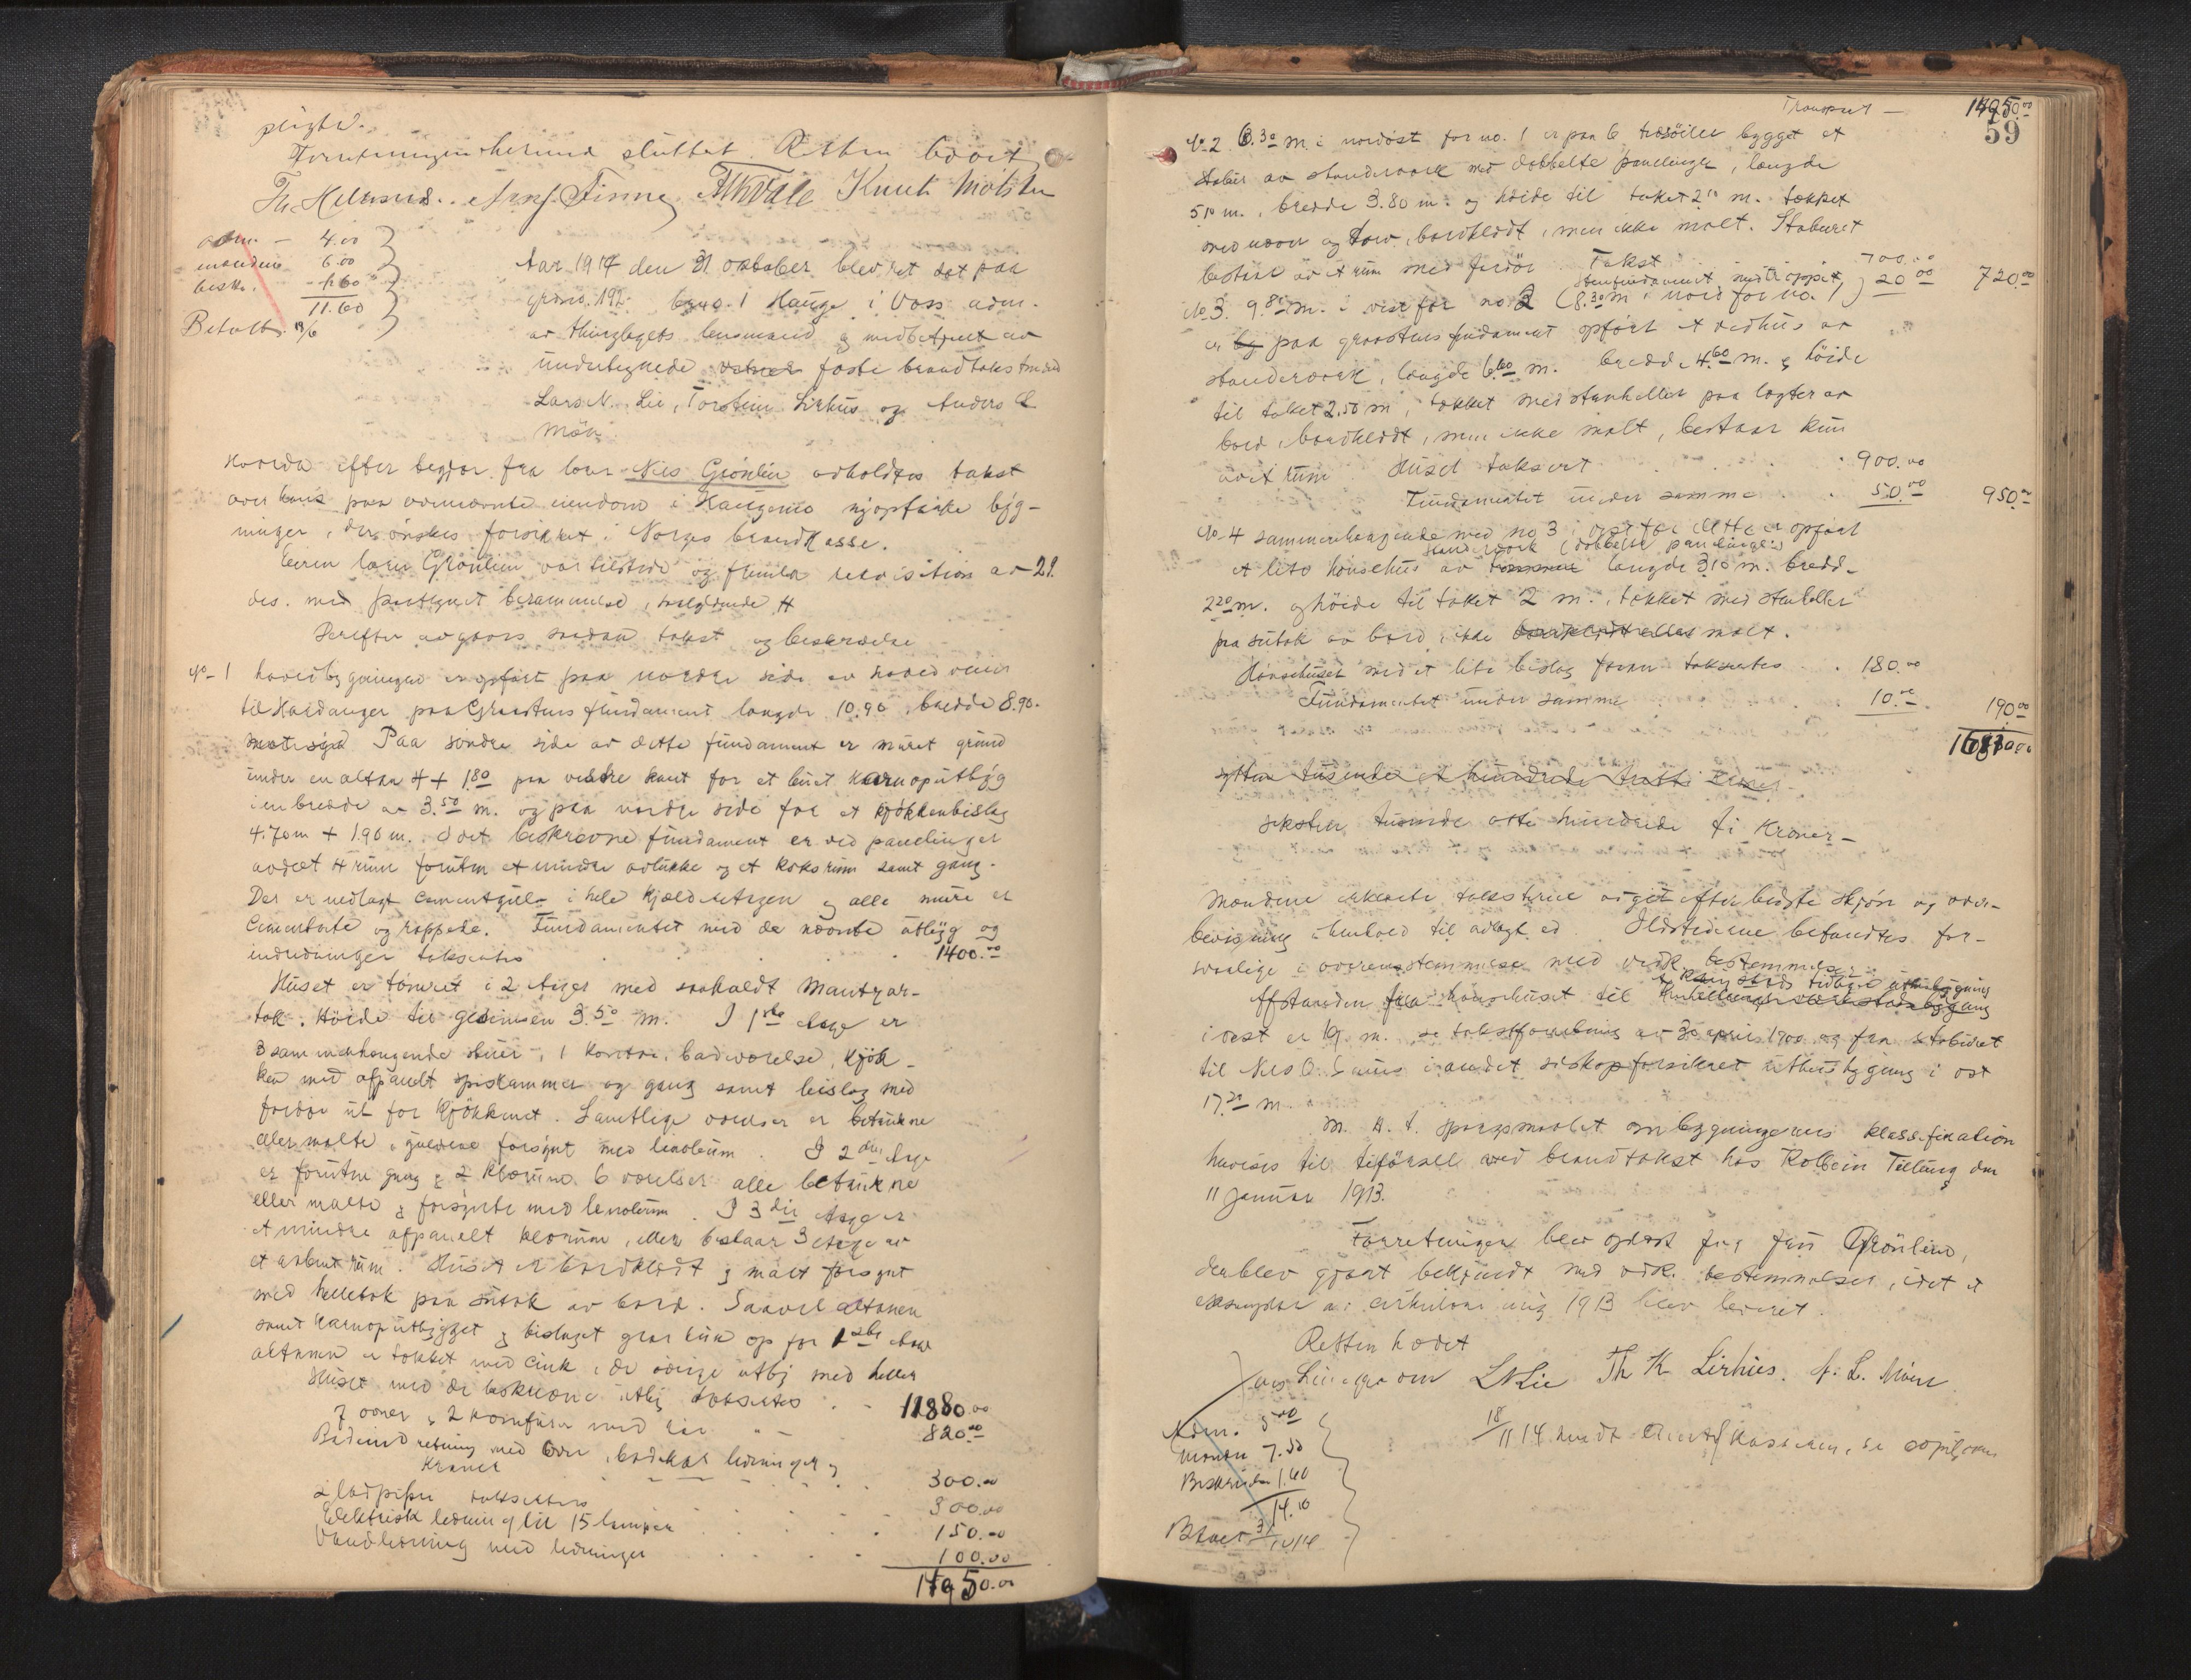 pligter.
Forretningen herunder sluttet. Retten hævet
Th. Helmund. Arnf. Finne, Knut Mølster
adm. - 4.00
mændene 6.00
beskr. - 1.60
11.60
Betalt 13/6
Aar 1914 den 31 oktober blev ret sat paa
grdno. 192 brno. 1 Hauge i Voss adm.
av thinglagets lensmand og medbetjent av
undertegnede faste brandtakstmænd
Lars N. Lie, Torstein Lirhus og Anders L
Møn
Hvorda efter begjær fra lærer Nils Grönlien avholdtes takst
over hans paa ovennævnte eiendom i Haugemo nyopførte byg-
ninger, der ønskes forsikret i Norges brandkasse.
Eieren lærer Grönlien var tilstede og fremla rekvisition av 29.
ds. med paategnet berammelse, saalydende #
Derefter avgaves saadan takst og beskrivelse
No. 1 hovedbygningen er opført paa nordre side av hovedveien
til Hardanger paa Graastens fundament længde 10.90, bredde 8.90.
Paa söndre side av dette fundament er muret grund
under en altan 4 + 1.80 paa vestre kant for et buet karnaputbyg
i en bredde av 3.50 m. og paa nordre side for et kjøkkenbislag
4.70 m + 1.90 m. I det beskrevne fundament er ved panelinger
avdelt 4 rum foruten et mindre avlukke og et koksrum samt gang.
Der er nedlagt cementgulv i hele kjælderetagen og alle mure er
cementerte og rappede. Fundamentet med de nævnte utbyg og
indredninger takseres 1400.00
Huset er tømret i 2 etager med saakaldt Mansar-
tak. Høide til gesimsen 3.50 m. I 1ste etage er
3 sammenhengende stuer, 1 kontor, badeværelse, kjøk-
ken med afpanelt spiskammer og gang samt bislag med
fordör ut for kjøkkenet. Samtlige værelser er betrukne
eller malte, gulvene forsynt med linoleum. I 2den etage
er foruten gang og 2 klærum 6 værelser alle betrukne
eller malte og forsynte med linoleum. I 3die etage er
et mindre afpanelt klærum, ellers bestaar 3 etage av
et aabent rum. Huset er bordklædt og malt forsynt
med helletak paa sutak av bord. Saavel altanen
samt karnaputbygget og bislaget gaar kun op for 1ste etage
altanen er tækket med zink, de övrige utbyg med heller
Huset med de beskrevne utbyg takseres 11880.00
7 ovner og 2 komfurer med rør 820.00
Badeindretning med ovn, badekar ledninger og
kraner 300.00
2 takseres 300.00
Elektrisk ledning til 15 lamper 150.00
Vandledning med ledninger 100.00
14950.00
Transport - 14950.00
59
No. 2 6.30 m. i nordöst for no. 1 er paa 6 træsöiler bygget et
stabur av stenderverk med dobbelte panelinger, længde
5.10 m., bredde 3.80 m. og høide til taket 2.10 m. tækket
med næver og torv, bordklædt, men ikke malt. Staburet
bestaar av et rum med fordör. Takst 700.00
Stenfundament med trappe 20.00 720.00
No. 3. 9.80 m. i vest for no. 2 (8.30 m i nord for no. 1)
er paa graastens fundament opført et vedhus av
stenderverk, længde 6.60 m. bredde 4.60 m. og høide
til taket 2.50 m, tækket med stenheller paa lægter av
bord, bordklædt, men ikke malt, bestaar kun
av et rum Huset taksert 900.00
Fundamentet under samme 50.00 950.00
No. 4 sammenhængende med no 3 i øst for dette er opført
et lite hönsehus av stenderverk (dobbelte panelinger) længde 3.10 m. bredde
2.20 m. og høide til taket 2 m., tækket med stenheller
paa sutak av bord, ikke bordklædt eller malt.
Hönsehuset med et lite bislag foran takseres 180.00
Fundamentet under samme 10.00 190.00
16810.00
sytten tusende et hundrede kroner
seksten tusende otte hundrede ti Kroner -
Mændene erklærte taksterne avgit efter bedste skjøn og over-
bevisning i henhold til avlagt ed. Ildstederne befandtes for-
svarlige i overensstemmelse med vedk. bestemmelser
Afstanden fra hønsehuset til
i vest er 19 m. se takstforretning av 30 april 1900 og fra staburet
til Nils O. i andet selskap forsikret uthusbygning i øst
17.20 m.
M. H. t. spørgsmaalet om bygningernes klassifikation
henvises til tilförsel ved brandtakst hos Kolbein Tillung den
11 januar 1913.
Forretningen blev oplæst for Grönlien,
der blev gjort bekjendt med vedk. bestemmelser, idet et
eksemplar av cirkulære 1913 blev leveret.
Retten hævet
L N Lie Th K Lirhus. A. L. Møen
Adm. 5.00
Mænden 7.50
Beskrivelse 1.60
14.10
Betalt 31/10 14
18/11 14 sendt